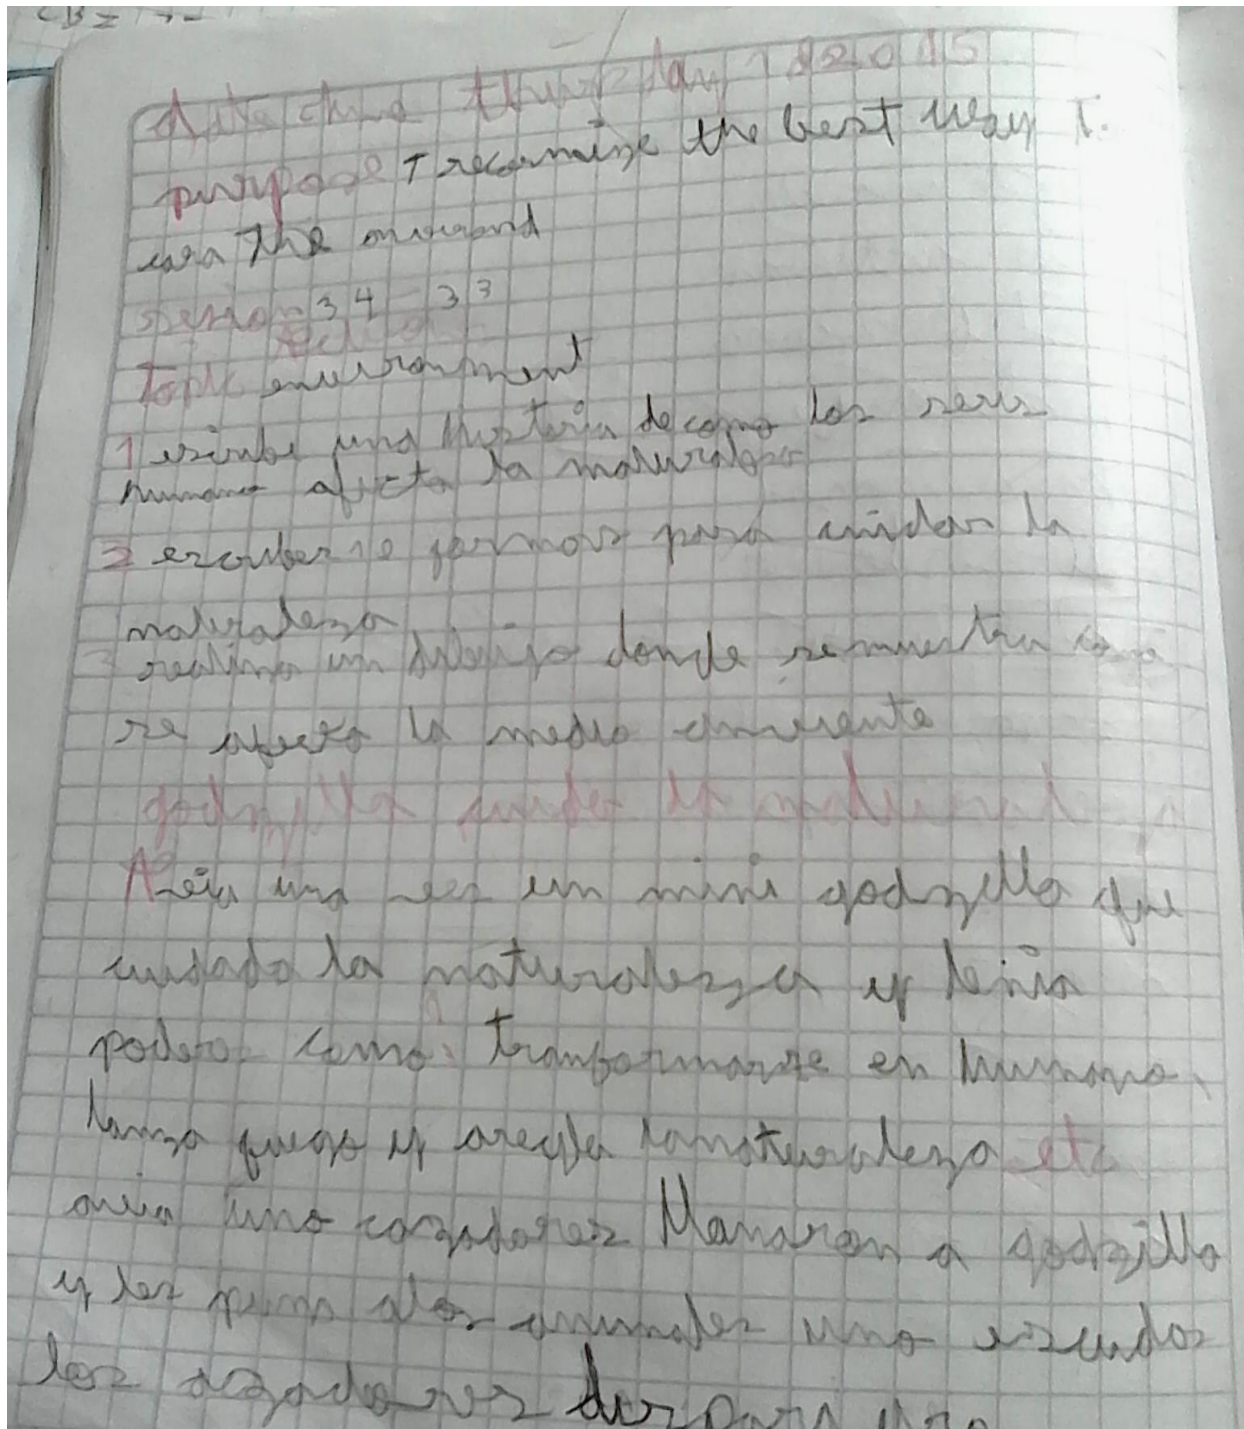 thursday
purpose + recornise the best way T.
cara the
session 34 - 33
Topic enuironment
1 escribe una historia de como los seres
humano afecta la naturaleza
2 escriber 10 formas para cuidar la
naturaleza
3 realiza un dibujo donde se muestra como
se afecta la medio
godzilla cuida la naturaleza
Abia una ves un mini godzilla que
cuidaba la naturalezza y tenia
podero como tranformarse en humano,
lanza fuego y aregla la naturaleza etc
avia uno cazadores Manaron a godzilla
y les puma alos animales uno escudos
los azadores